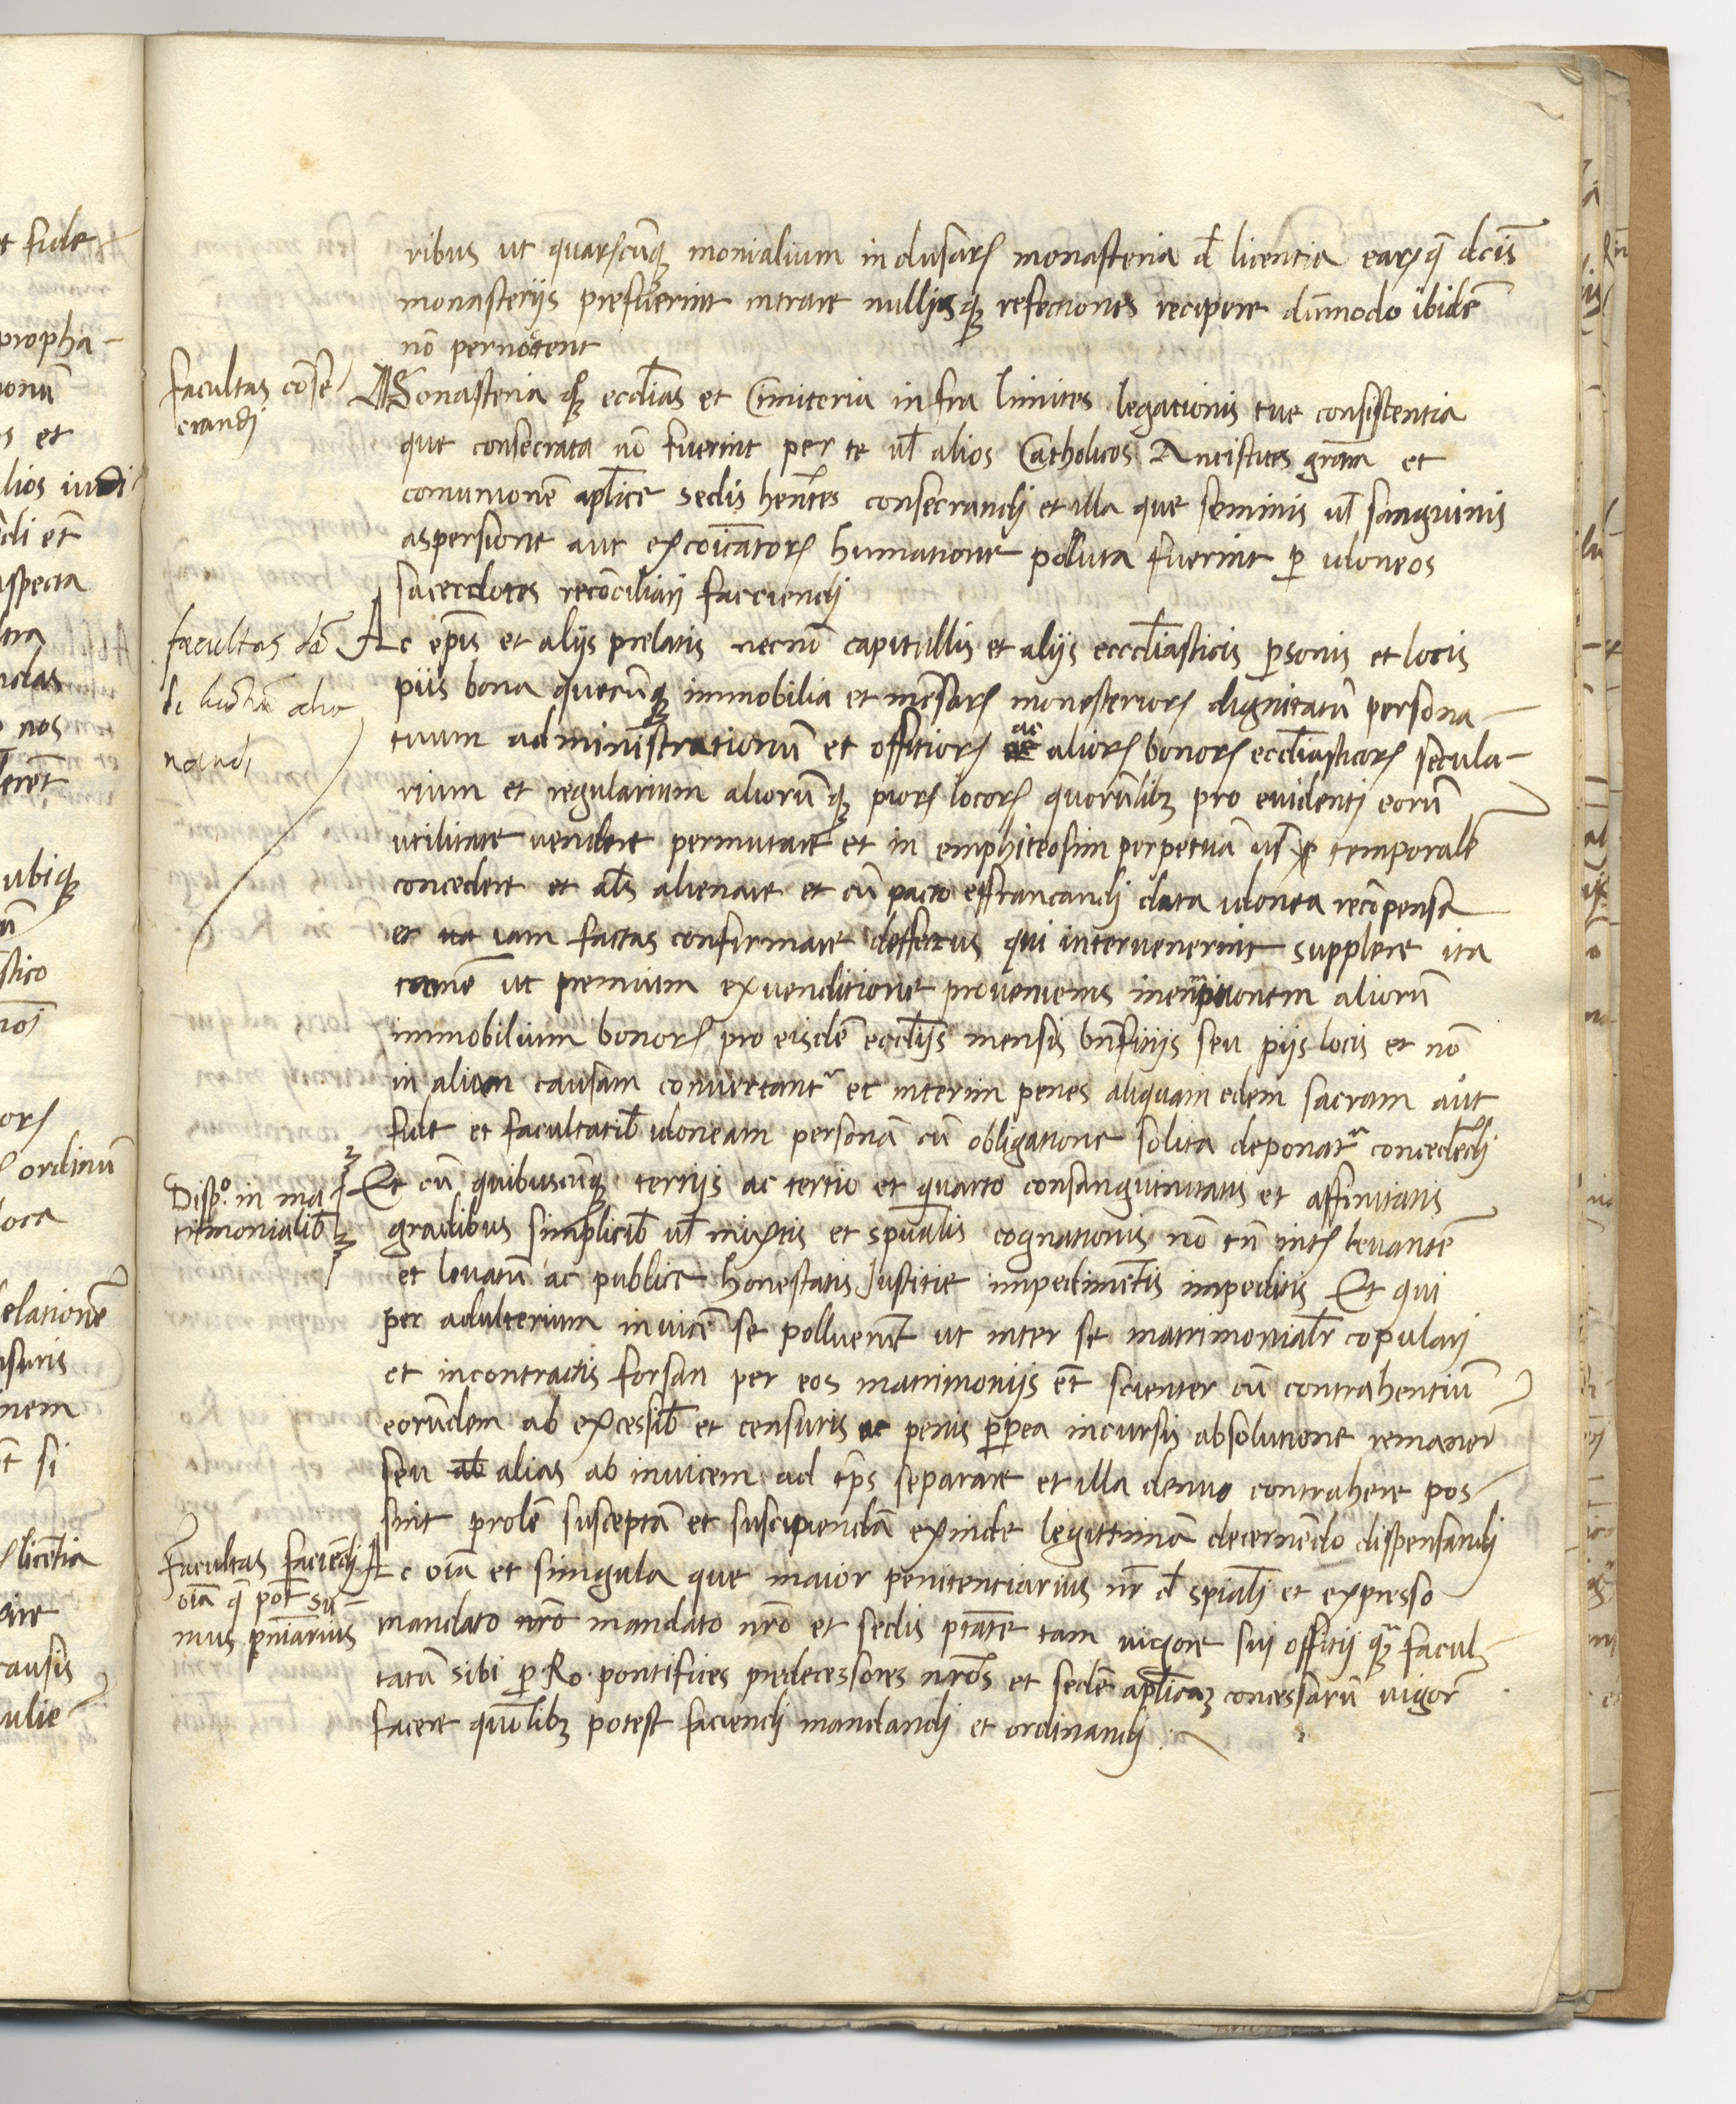 ribus ut quarūcūq monialium inclusarū monasteria d licentia earū q dcis
monasterijs prefuerint intrare nullasq refectiones recipere dūmodo ibidē
nō pernoctent
facultas cōse
crandj
Monasteria q ecclias et Cimiteria infra limites legationis tue consistentia
que consecrata nō fuerint per te ul alios Catholicos Antistites gram et
comunionē aplice sedis hentes consecrandj et illa que seminis ul sanguinis
aspersione aut excoicatorū humatione polluta fuerint p idoneos
sacerdotes reconciliarj facciendj
facultas dā
di
nandi
Ac epis et alijs prelatis necnō capitullis et alijs ecccliasticis psonis et locis
piis bona quecūq immobilia et mēsarū monasteriorū dignitatū persona-
tuum administrationū et offitiorū ac aliorū bonorū eccliasticorū secula-
rium et regularium aliorūq piorū locorū quorūlibz pro euidentj eorū
utilitate uendere permutare et in emphiteosim perpetuā ul temporalē
concedere et als alienare et cū pacto effrancandj data idonea recōpensa
et iam factas confirmare deffectus qui interuenerint supplere ita
tamē ut premium ex uenditione proueniens in emptionem aliorū
immobilium bonorū pro eisdē ecclijs mensis bnfitijs seu pijs locis et nō
in aliam causam conuertant et interim penes aliquam edem sacram aut
fide et facultatib idoneam personā cū obligatione solita deponat concedēdj
Disp.º in ma
trimonialib
Et cū quibuscūq tertijs ac tertio et quarto consanguinitatis et affinitatis
gradibus simplicib ul mixtis et spualis cognationis nō tn int leuantē
et leuatū ac publice honestatis Justitie impedimētis impeditis Et qui
per adulterium inuicē se polluerūt ut inter se matrimonialr copularj
et in contractis forsan per eos matrimonijs ēt scienter cū contrahentiū
eorūndem ab excessib et censuris ac penis ppea incursis absolutione remanere
seu ab alias ab inuicem ad tps separare et illa denuo contrahere pos-
sint prolē susceptā et suscipiendā exinde legittimā decernēdo dispensandj
Facultas faciēdj
oīa q pōt su-
mus pniarius
Ac oīa et singula que maior penitentiarius nr d spialj et expresso
mandato nrō mandato nrō et sedis ptate tam uigore suj offitij q facul-
tatū sibi p Ro. pontifices predecessores nrōs et sedē aplicaz concessarū uigorē
facere quōlibz potest faciendj mandandj et ordinandj